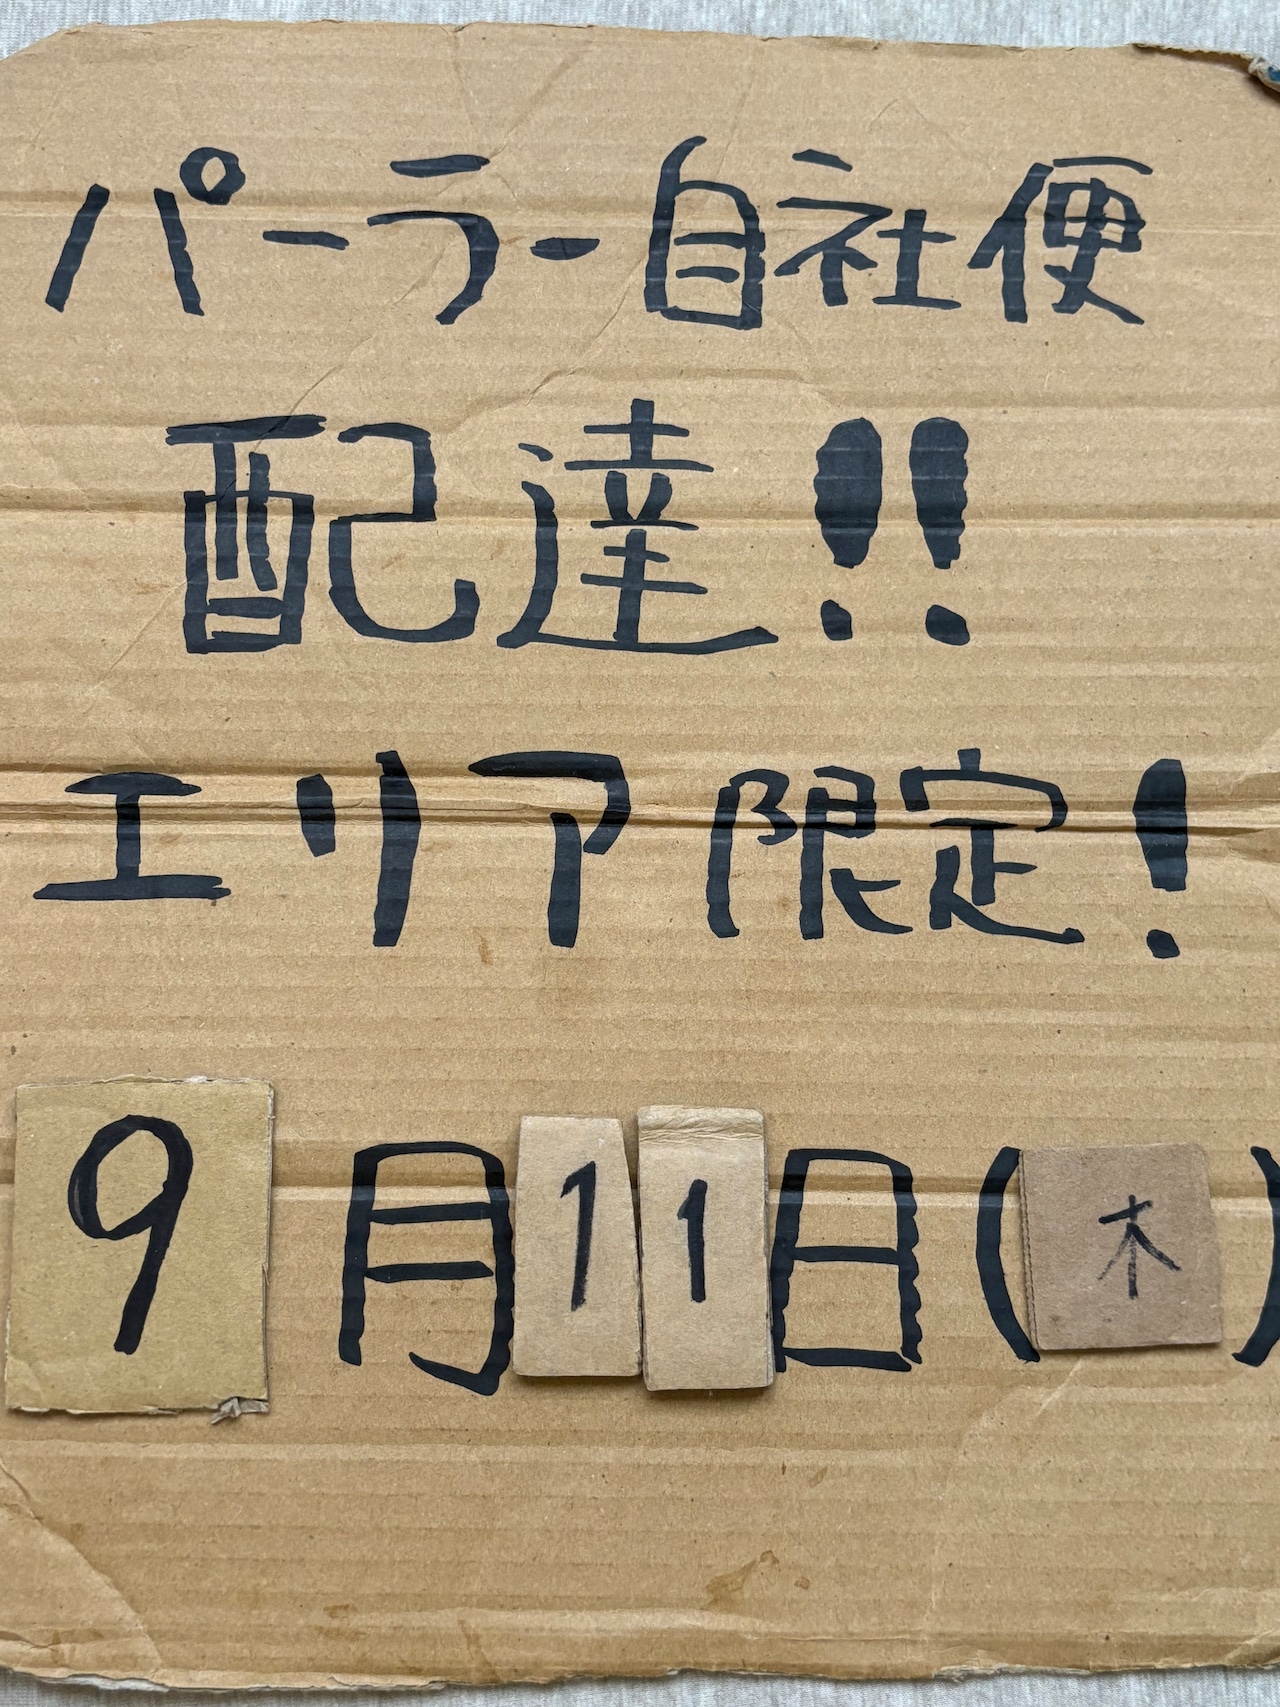 パーラー自社便
配達!!
エリア限定!
9月11日(木)